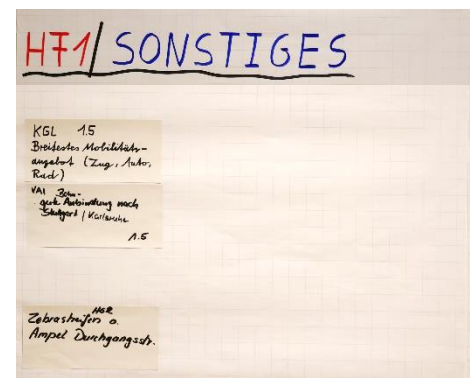 HF1/SONSTIGES
KGL 1.5
Breitestes Mobilitäts-
angebot (Zug, Auto,
Rad)
VAI Bahn-
gute Anbindung nach
Stuttgart / Karlsruhe
1.5
HGR
Zebrastreifen o.
Ampel Durchgangsstr.